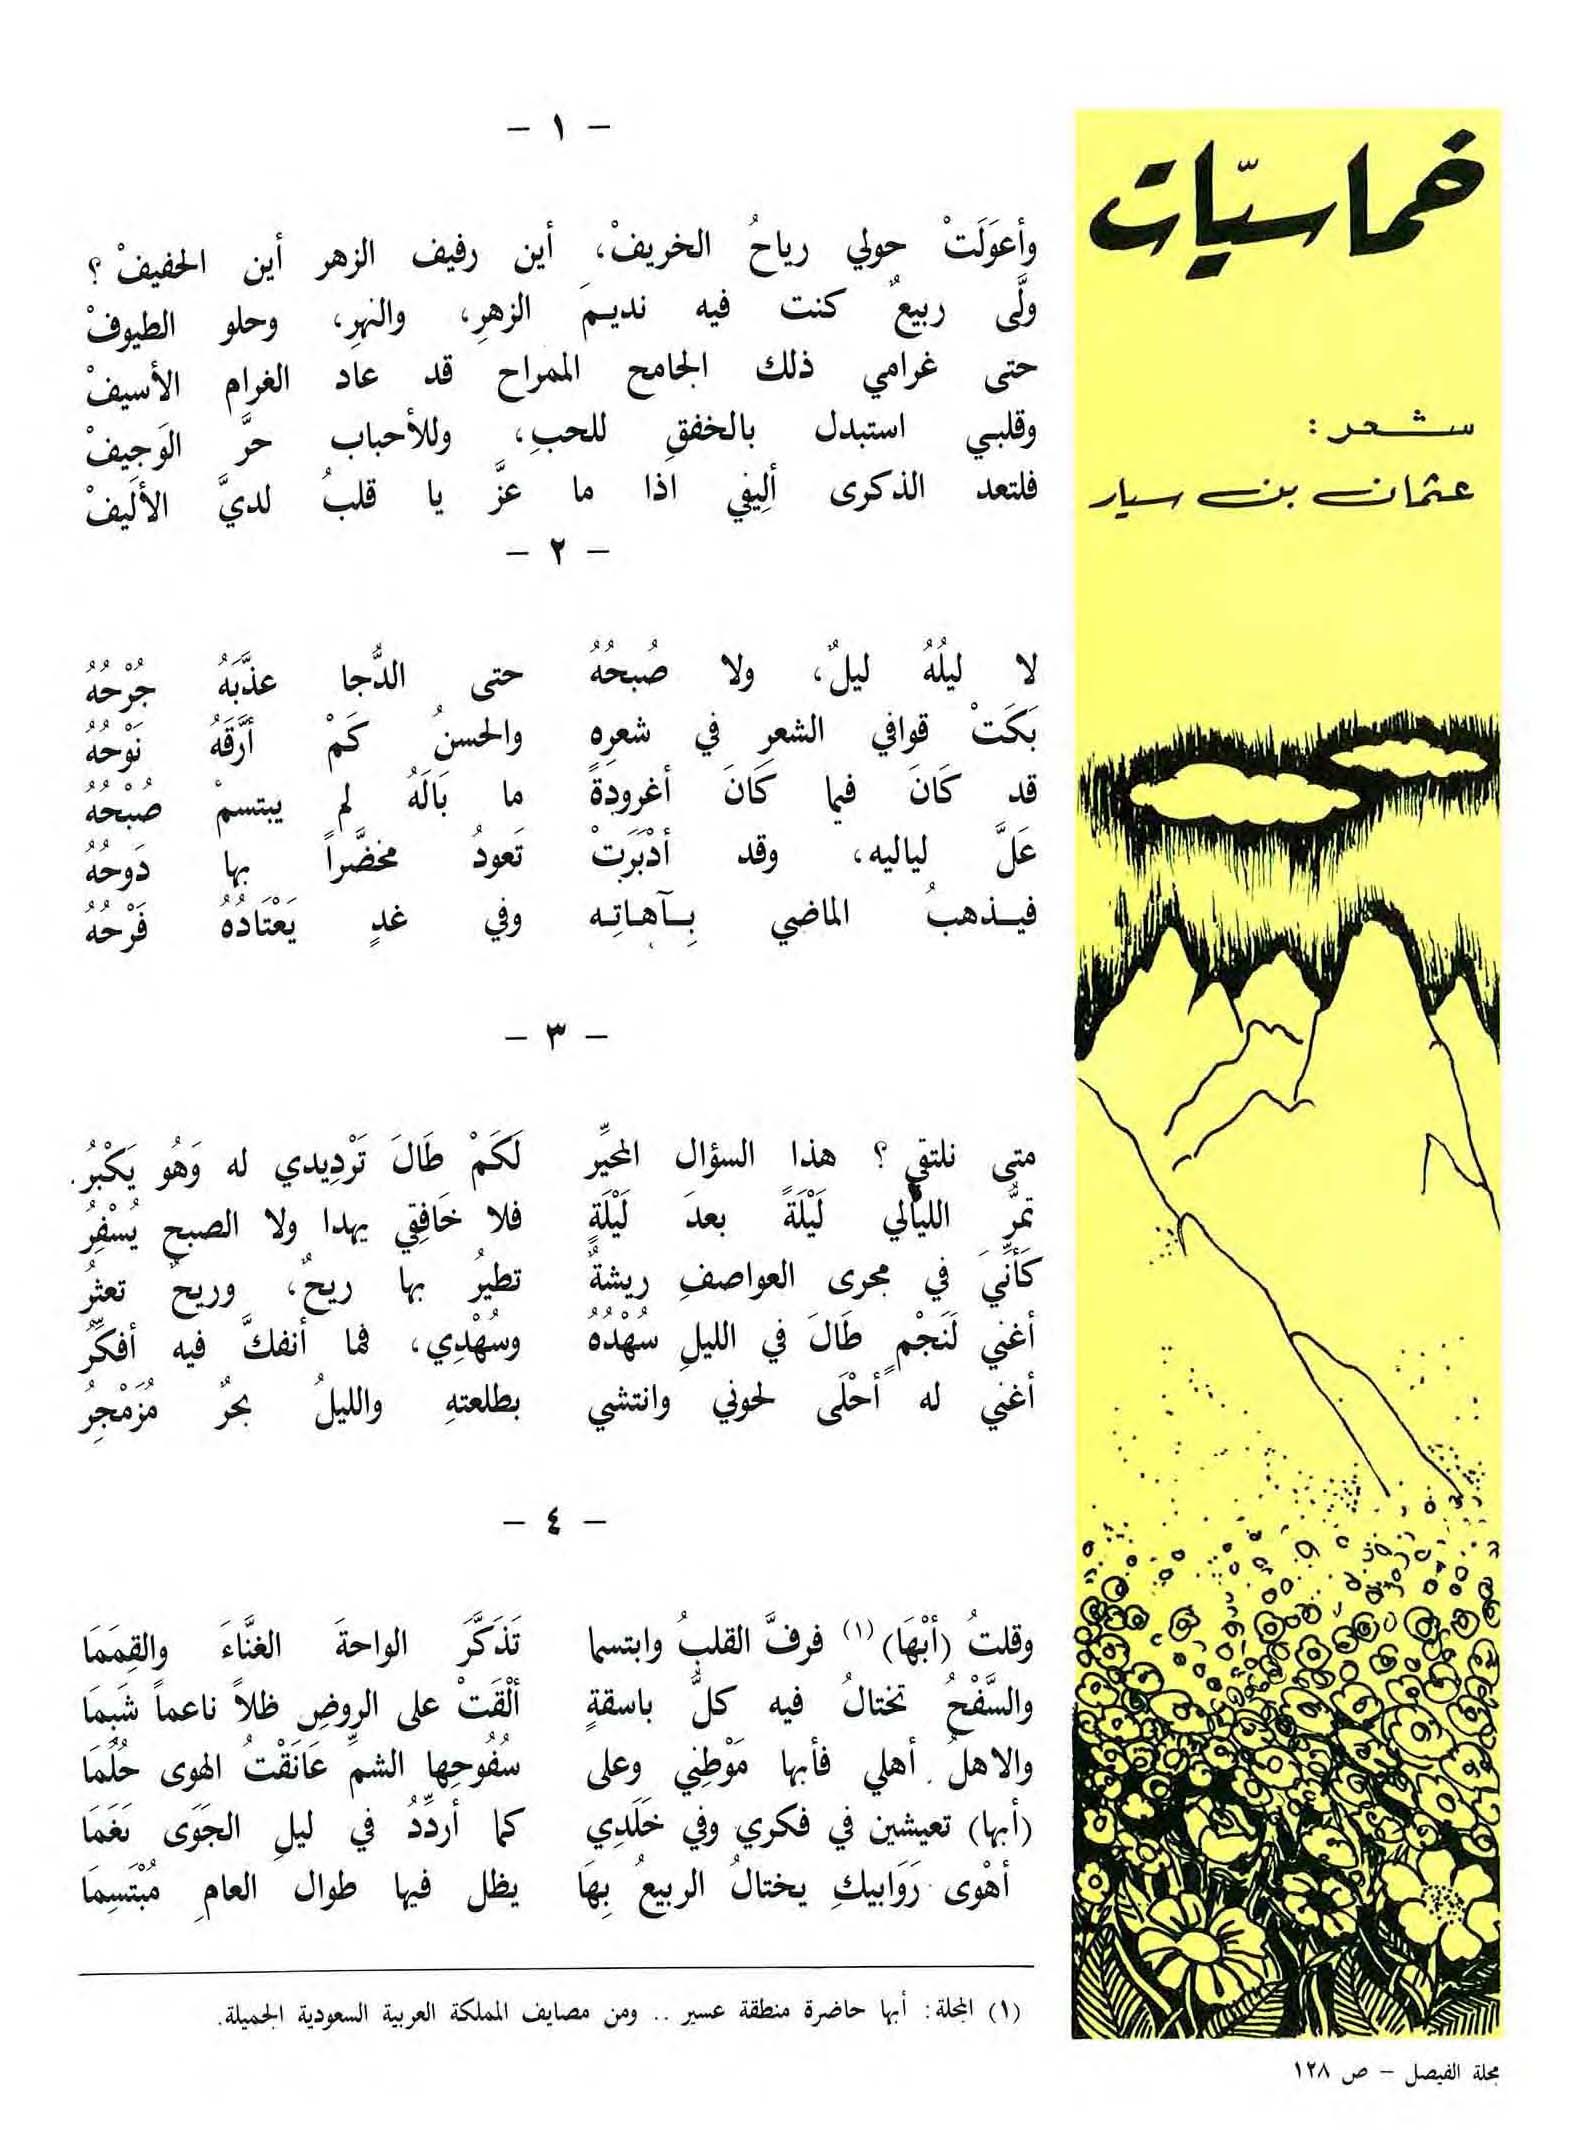 خماسيّات
شعر :
عثمان بن سيار
- ١ -
وأعوَلَتْ حولي رياحُ الخريفْ، أين رفيف الزهر أين الحفيفْ ؟
ولَّى ربيعٌ كنت فيه نديمَ الزهرِ، والنهرِ، وحلو الطيوفْ
حتى غرامي ذلك الجامح الممراح قد عاد الغرام الأسيفْ
وقلبي استبدل بالخفقِ للحبِ، وللأحباب حرَّ الوَجِيفْ
فلتعد الذكرى ألِيفي اذا ما عزَّ يا قلبُ لديَّ الألَيفْ
- ٢ -
لا ليلُهُ ليلٌ، ولا صُبحُهُ حتى الدُّجا عذَّبَهُ جُرْحُهُ
بَكَتْ قوافي الشعرِ في شعرِه والحسنُ كَمْ أرَّقَهُ نَوْحُهُ
قد كَانَ فيما كَانَ أغرودةً ما بَالَهُ لم يبتسمْ صُبْحُهُ
عَلَّ لياليه، وقد أدْبَرَتْ تَعودُ مخضَّراً بها دَوحُهُ
فيذهبُ الماضي بِآهاتِه وفي غدٍ يَعْتَادُهُ فَرْحُهُ
- ٣ -
متى نلتقي ؟ هذا السؤال المحيِّر لَكَمْ طَالَ تَرْدِيدي له وَهُو يَكْبُرُ.
تمرُّ الليالي لَيْلَةً بعدَ لَيْلَةٍ فلا خَافِقِي يهدا ولا الصبح يُسْفِرُ
كَأنِّيَ في مجرى العواصفِ ريشةٌ تطيرُ بها ريحٌ، وريحٌ تعثرُ
أغني لَنَجْمٍ طَالَ في الليلِ سُهْدُهُ وسُهْدِي، فما أنفكَّ فيه أفكِّرُ
أغني له أحْلَى لحوني وانتشي بطلعتهِ والليلُ بحرٌ مُزَمْجِرُ
- ٤ -
وقلتُ (أبْهَا) (١) فرفَّ القلبُ وابتسما تَذَكَّرَ الواحةَ الغنَّاءَ والقِمَمَا
والسَّفْحُ تختالُ فيه كلُّ باسقةٍ ألْقَتْ على الروضِ ظلاً ناعماً شَبِمَا
والاهلُ أهلي فأبها مَوْطِني وعلى سُفُوحِها الشمِّ عَانَقْتُ الهوى حُلُمَا
(أبها) تعيشين في فكري وفي خَلَدِي كما أردِّدُ في ليلِ الجَوَى نَغَمَا
أهْوى رَوَابيكِ يختالُ الربيعُ بِهَا يظل فيها طوال العامِ مُبْتَسِمَا
(١) المجلة : أبها حاضرة منطقة عسير .. ومن مصايف المملكة العربية السعودية الجميلة.
مجلة الفيصل - ص ١٢٨